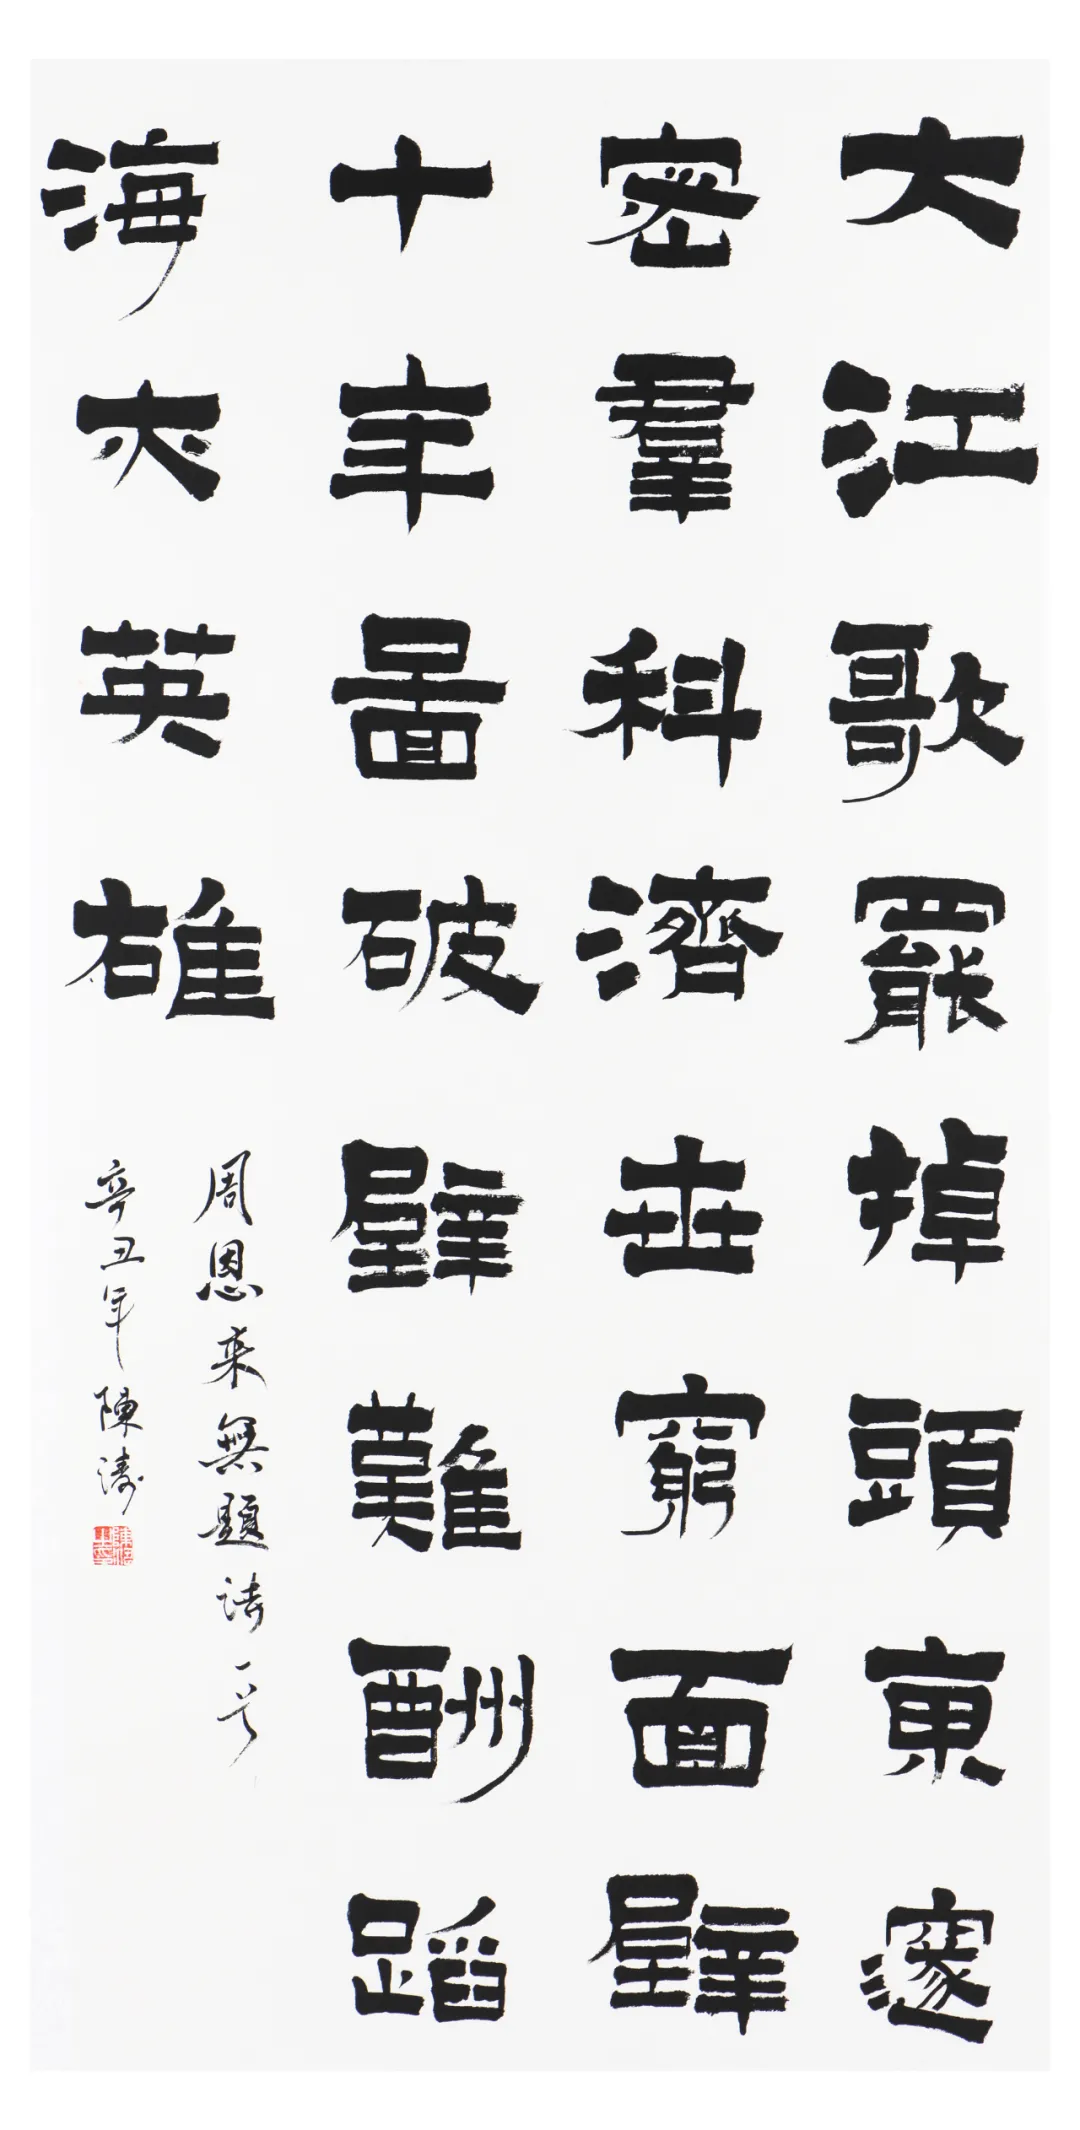 大江歌罷掉頭東邃
密羣科濟世窮面壁
十年啚破壁難酬蹈
海亦英雄
周恩来無題詩一首
辛丑年陳濤